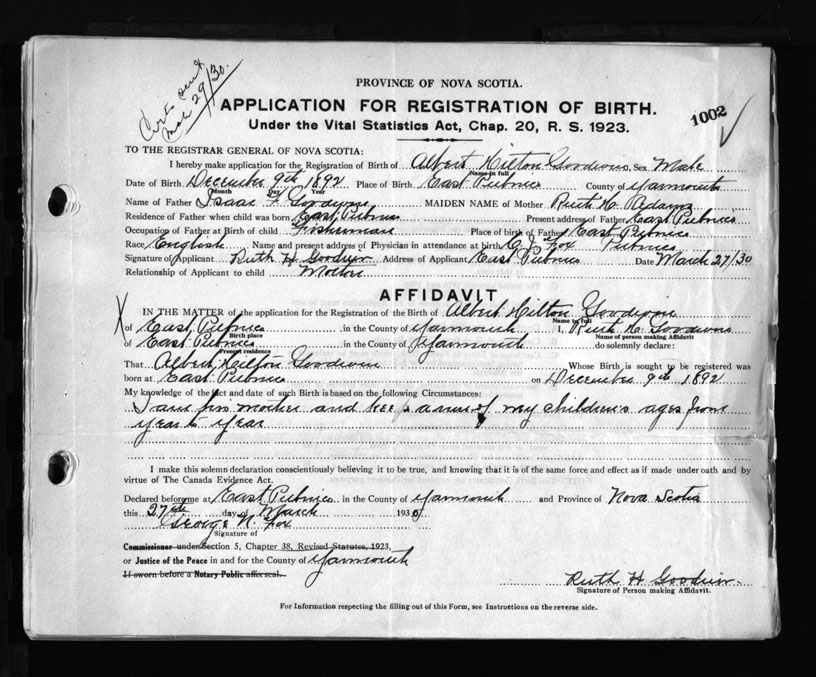 Certs sent
Mch 29/30.
PROVINCE OF NOVA SCOTIA.
APPLICATION FOR REGISTRATION OF BIRTH.
1002
Under the Vital Statistics Act, Chap. 20, R. S. 1923.
TO THE REGISTRAR GENERAL OF NOVA SCOTIA:
I hereby make application for the Registration of Birth of Albert Hilton Goodwin Sex Male
Name in full
Date of Birth December 9th 1892 Place of Birth East Pubnico County of Yarmouth
Month Day Year
Name of Father Isaac F Goodwin MAIDEN NAME of Mother Ruth H. Adams
Residence of Father when child was born East Pubnico Present address of Father East Pubnico
Occupation of Father at Birth of child Fisherman Place of birth of Father East Pubnico
Race English Name and present address of Physician in attendance at birth C. J. Fox Pubnico
Signature of Applicant Ruth H Goodwin Address of Applicant East Pubnico Date March 27/30
Relationship of Applicant to child Mother
AFFIDAVIT
IN THE MATTER of the application for the Registration of the Birth of Albert Hilton Goodwin
Name in full
X of East Pubnico in the County of Yarmouth I, Ruth H. Goodwin
Birth place Name of person making Affidavit
of East Pubnico in the County of Yarmouth do solemnly declare:
Present residence
That Albert Hilton Goodwin Whose Birth is sought to be registered was
born at East Pubnico on December 9th 1892
My knowledge of the fact and date of such Birth is based on the following Circumstances:
I am his mother and keep a run of my children's ages from
year to year
I make this solemn declaration conscientiously believing it to be true, and knowing that it is of the same force and effect as if made under oath and by
virtue of The Canada Evidence Act.
Declared before me at East Pubnico in the County of Yarmouth and Province of Nova Scotia
this 27th day of March 1930
George N. Fox
Signature of
Commissioner under Section 5, Chapter 38, Revised Statutes, 1923,
or Justice of the Peace in and for the County of Yarmouth
If sworn before a Notary Public affix seal.
Ruth H Goodwin
Signature of Person making Affidavit.
For Information respecting the filling out of this Form, see Instructions on the reverse side.